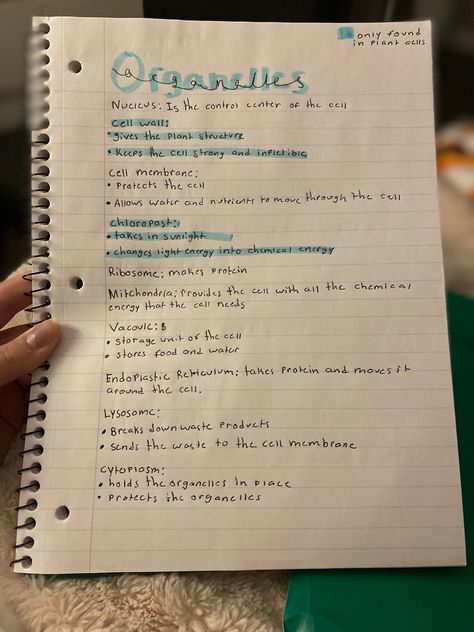 only found
in Plant cells
Organelles
organelles
Nucleus: Is the control center of the cell
Cell wall:
• gives the Plant structure
• Keeps the cell strong and inflexible
Cell membrane:
• Protects the cell
• Allows water and nutrients to move through the cell
Chloropast:
• takes in sunlight
• changes light energy into chemical energy
Ribosome: makes protein
Mitchondria: Provides the cell with all the chemical
energy that the cell needs
Vacoule:
• storage unit of the cell
• stores food and water
Endoplastic Reticulum: takes Protein and moves it
around the cell.
Lysosome:
• Breaks down waste products
• sends the waste to the cell membrane
Cytoplasm:
• holds the organelles in place
• Protects the organelles